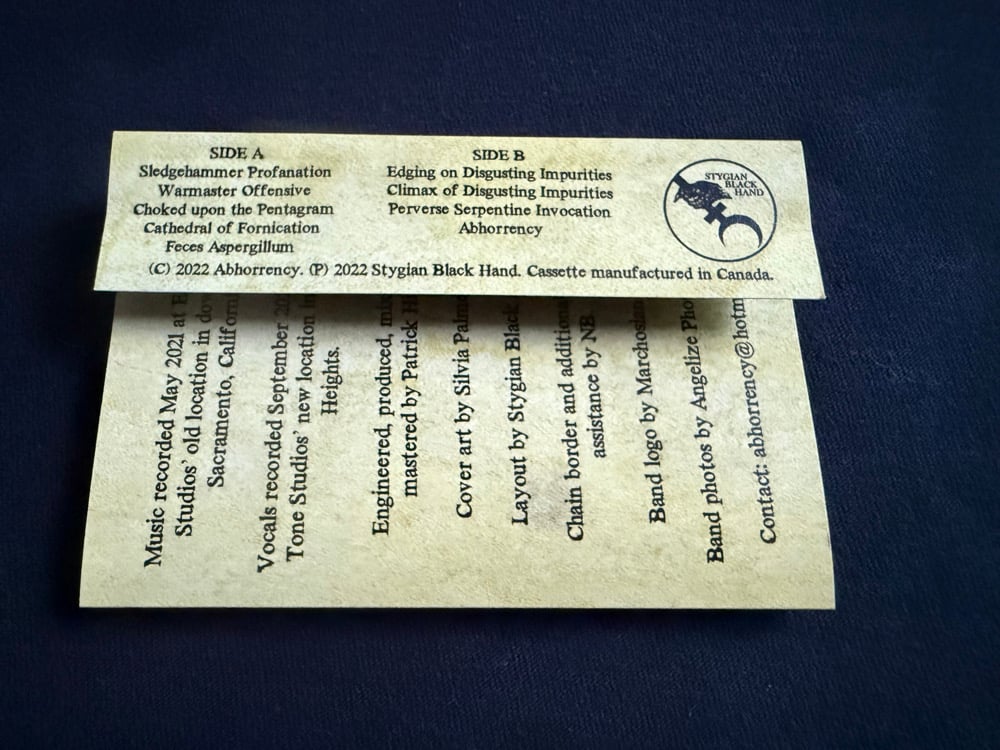 SIDE A
Sledgehammer Profanation
Warmaster Offensive
Choked upon the Pentagram
Cathedral of Fornication
Feces Aspergillum
SIDE B
Edging on Disgusting Impurities
Climax of Disgusting Impurities
Perverse Serpentine Invocation
Abhorrency
STYGIAN
BLACK
HAND
(C) 2022 Abhorrency. (P) 2022 Stygian Black Hand. Cassette manufactured in Canada.
Music recorded May 2021 at
Studios' old location in
Sacramento,
Vocals recorded September
Tone Studios' new location
Heights.
Engineered, produced,
mastered by Patrick
Cover art by Silvia
Layout by Stygian Black
Chain border and
assistance by NB.
Band logo by
Band photos by Angelize
Contact: